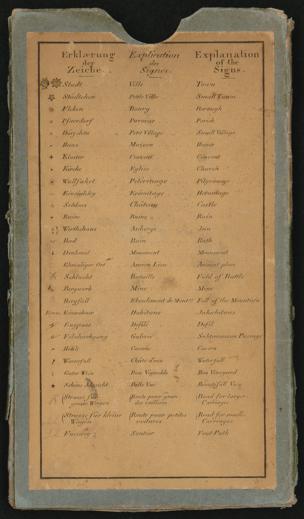 Erklærung Explication Explanation
der des of the
Zeiche. Signes. Signs.
Stadt Ville Town
Städtchen Petite Ville Small Town
Flecken Bourg Borough
Pfarrdorf Paroisse Parish
Dörfchen Petit Village Small Village
Haus Maison House
Kloster Couvent Convent
Kirche Eglise Church
Wallfahrt Pelerinage Pilgrimage
Einsiedeley Ermitage Hermitage
Schloss Château Castle
Ruine Ruine Ruin
Wirthshaus Auberge Inn
Bad Bain Bath
Denkmal Monument Monument
Ehmaliger Ort Ancien Lieu Ancient place
Schlacht Bataille Field of Battle
Bergwerk Mine Mine
Bergfall Eboulement de Mont Fall of the Mountain
Einwohner Habitans Inhabitans
Engpass Défilé Defil
Galerie Subterranean Passage
Höhle Caverne Cavern
Wasserfall Chûte d'eau Waterfall
Guter Wein Bon Vignoble Bon Vineyard
Schöne Aussicht Belle Vue Beautyfull View
Strasse für Route pour gros Road for larger
Wagen Carriages
Strasse für kleine Route pour petites Road for small
Wagen voitures Carriages
Fussweg Sentier Foot Path